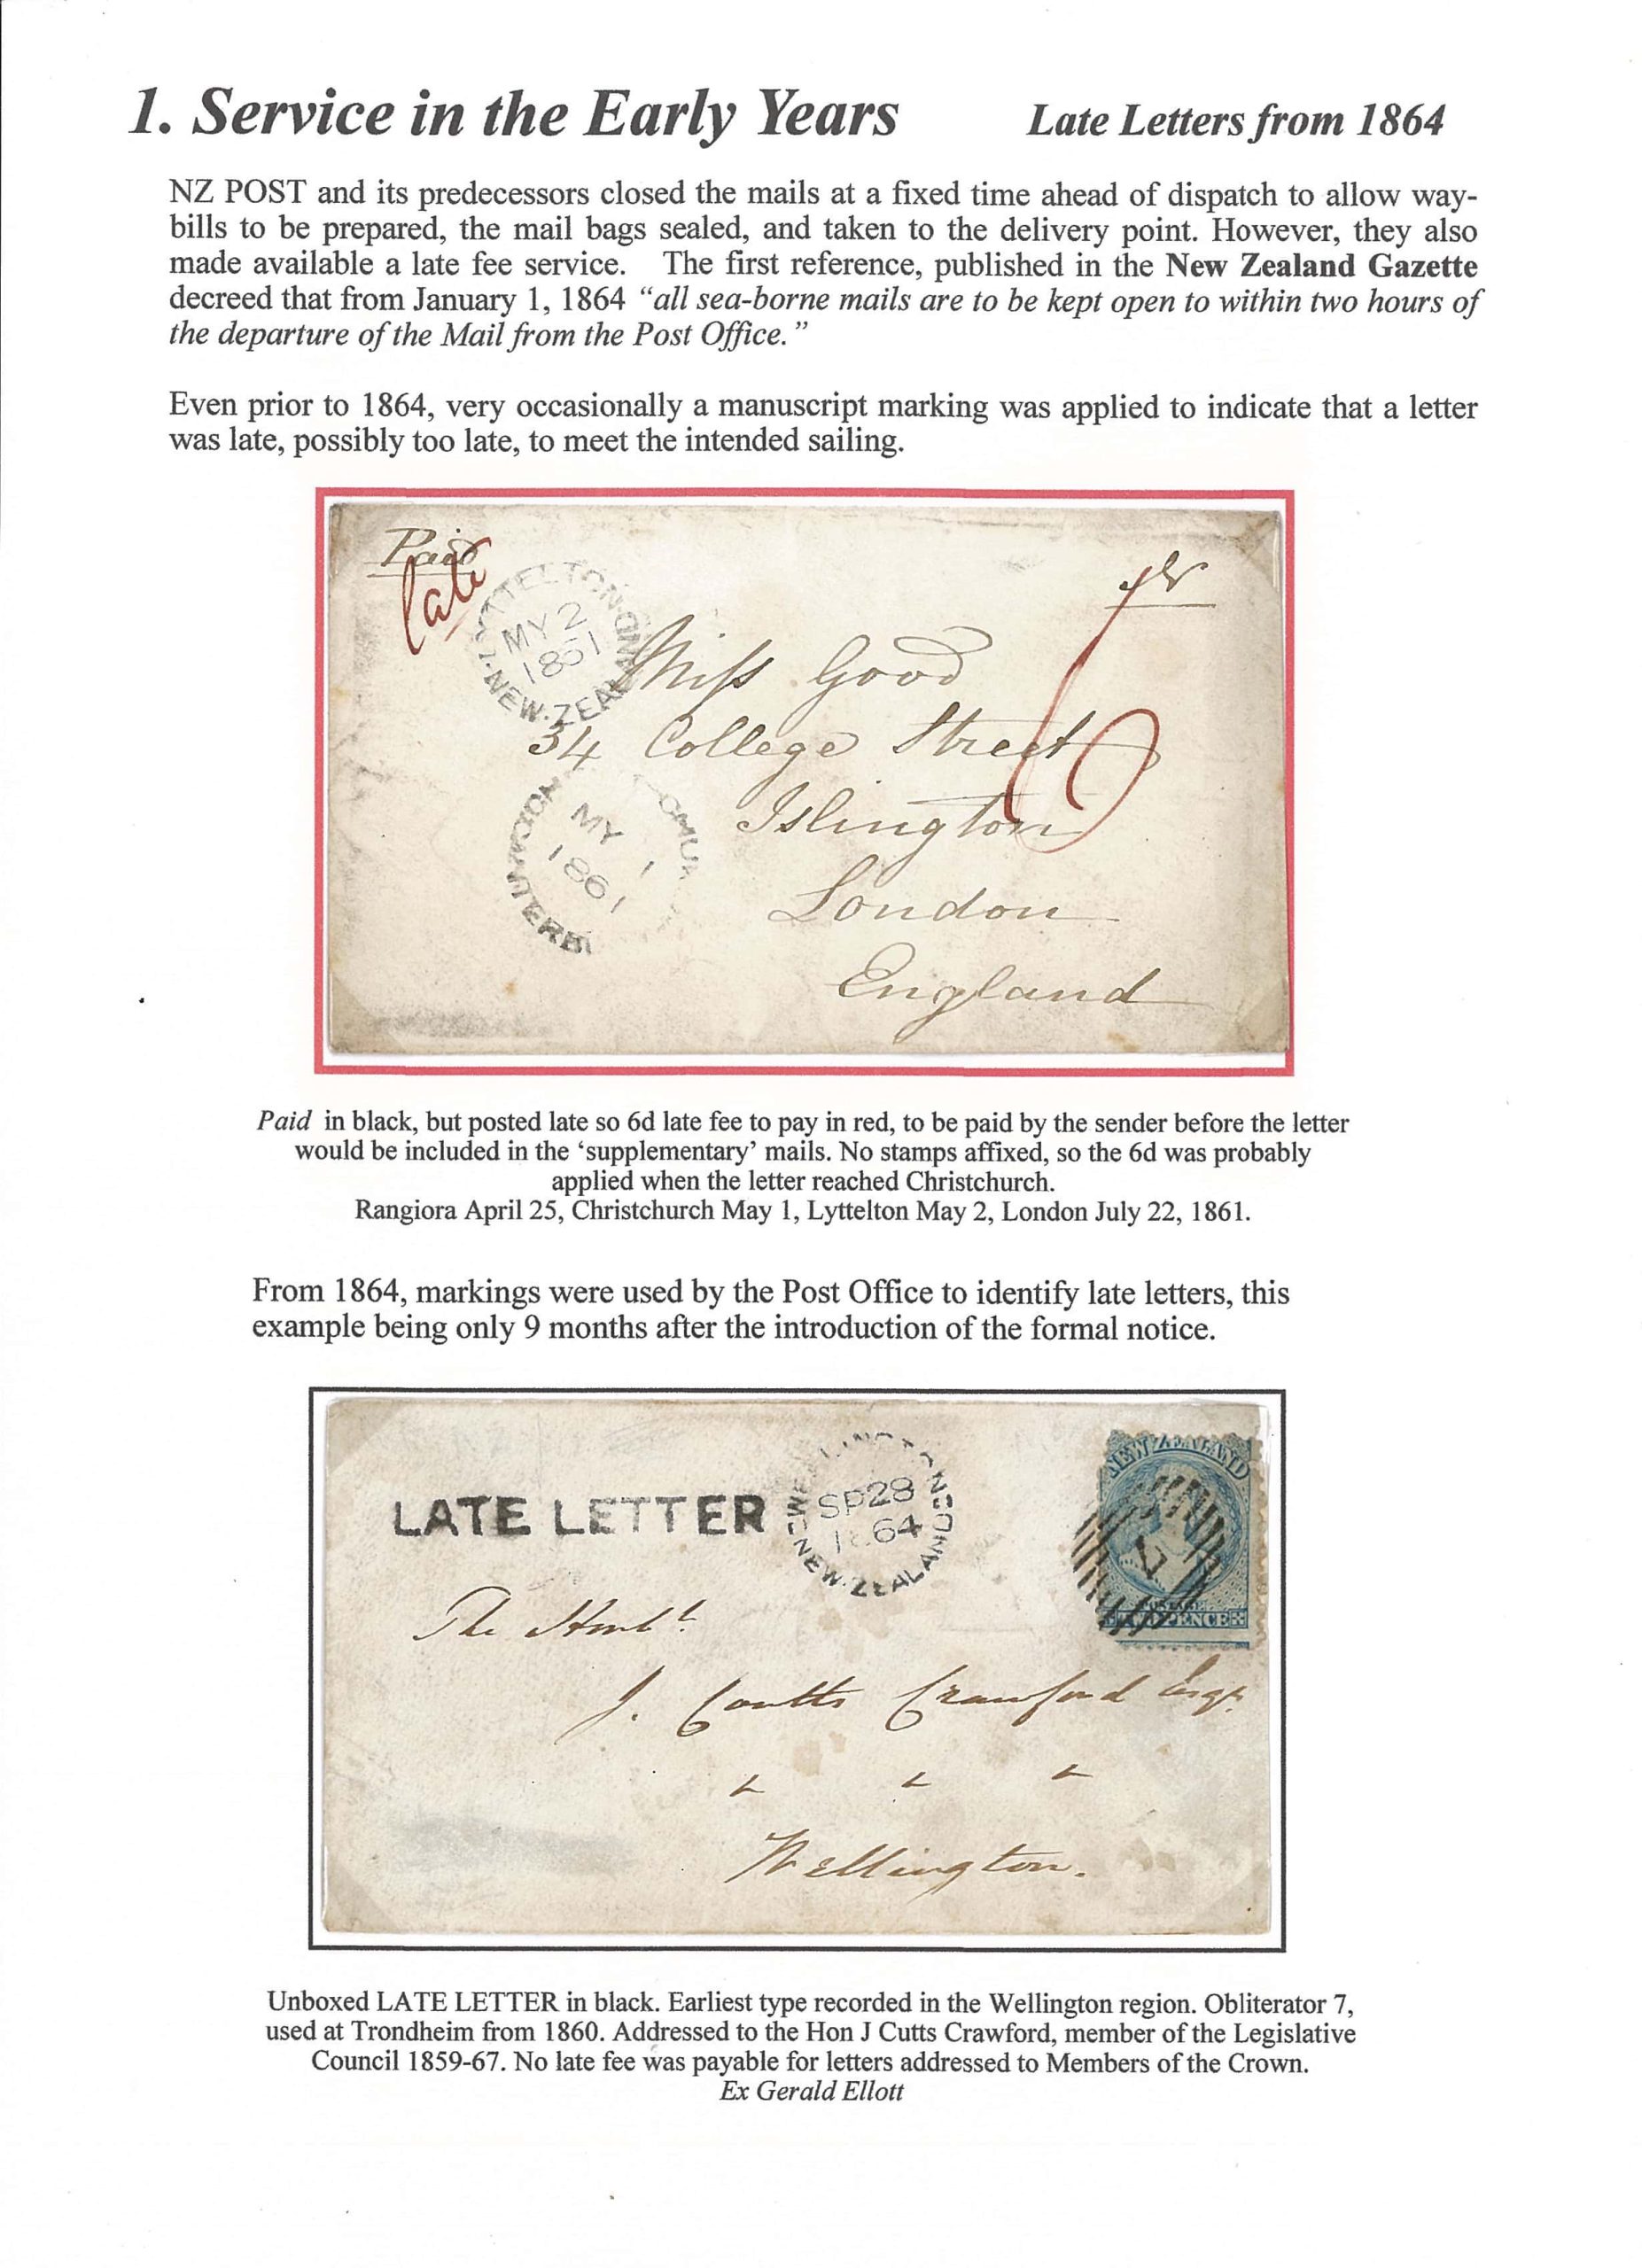 1. Service in the Early Years Late Letters from 1864
NZ POST and its predecessors closed the mails at a fixed time ahead of dispatch to allow way-
bills to be prepared, the mail bags sealed, and taken to the delivery point. However, they also
made available a late fee service. The first reference, published in the New Zealand Gazette
decreed that from January 1, 1864 “all sea-borne mails are to be kept open to within two hours of
the departure of the Mail from the Post Office.”
Even prior to 1864, very occasionally a manuscript marking was applied to indicate that a letter
was late, possibly too late, to meet the intended sailing.
Paid
late
MY 2
1861
NEW·ZEA
Miss Good
34 College Street
Islington
London
England
6
MY 1
1861
Paid in black, but posted late so 6d late fee to pay in red, to be paid by the sender before the letter
would be included in the ‘supplementary’ mails. No stamps affixed, so the 6d was probably
applied when the letter reached Christchurch.
Rangiora April 25, Christchurch May 1, Lyttelton May 2, London July 22, 1861.
From 1864, markings were used by the Post Office to identify late letters, this
example being only 9 months after the introduction of the formal notice.
LATE LETTER
SP 28
1864
NEW·ZEALAND
NEW ZEALAND
7
POSTAGE
TWO PENCE
The Honble
J. Coutts Crawford Esqr.
Wellington.
Unboxed LATE LETTER in black. Earliest type recorded in the Wellington region. Obliterator 7,
used at Trondheim from 1860. Addressed to the Hon J Cutts Crawford, member of the Legislative
Council 1859-67. No late fee was payable for letters addressed to Members of the Crown.
Ex Gerald Ellott